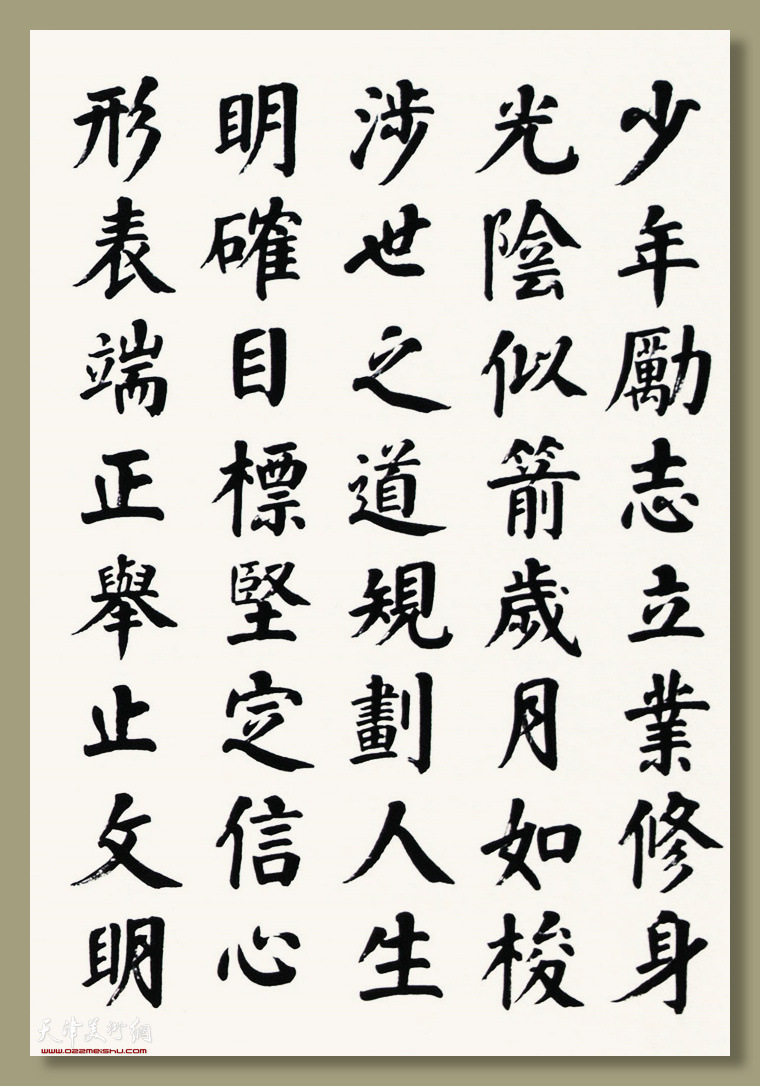 少年勵志立業修身
光陰似箭歲月如梭
涉世之道規劃人生
明確目標堅定信心
形表端正舉止文明
天津美術網
www.022meishu.com